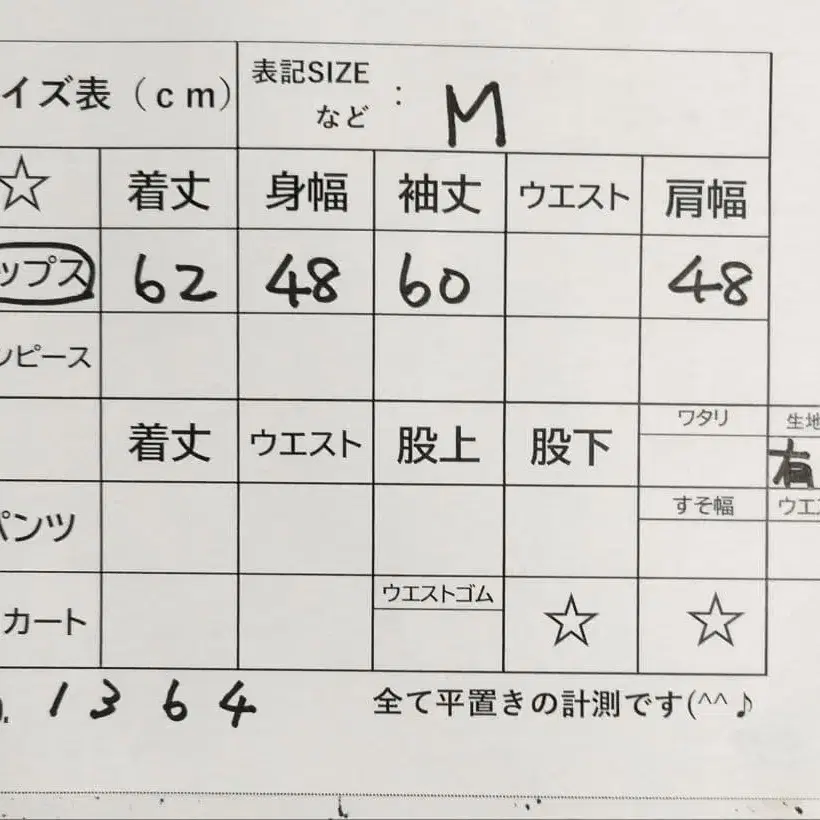 イズ表（ｃｍ） 表記SIZE
など : M
☆ 着丈 身幅 袖丈 ウエスト 肩幅
ップス 62 48 60 48
ンピース
着丈 ウエスト 股上 股下 ワタリ 生地
有
パンツ すそ幅 ウエス
カート ウエストゴム ☆ ☆
. 1364 全て平置きの計測です(^^♪